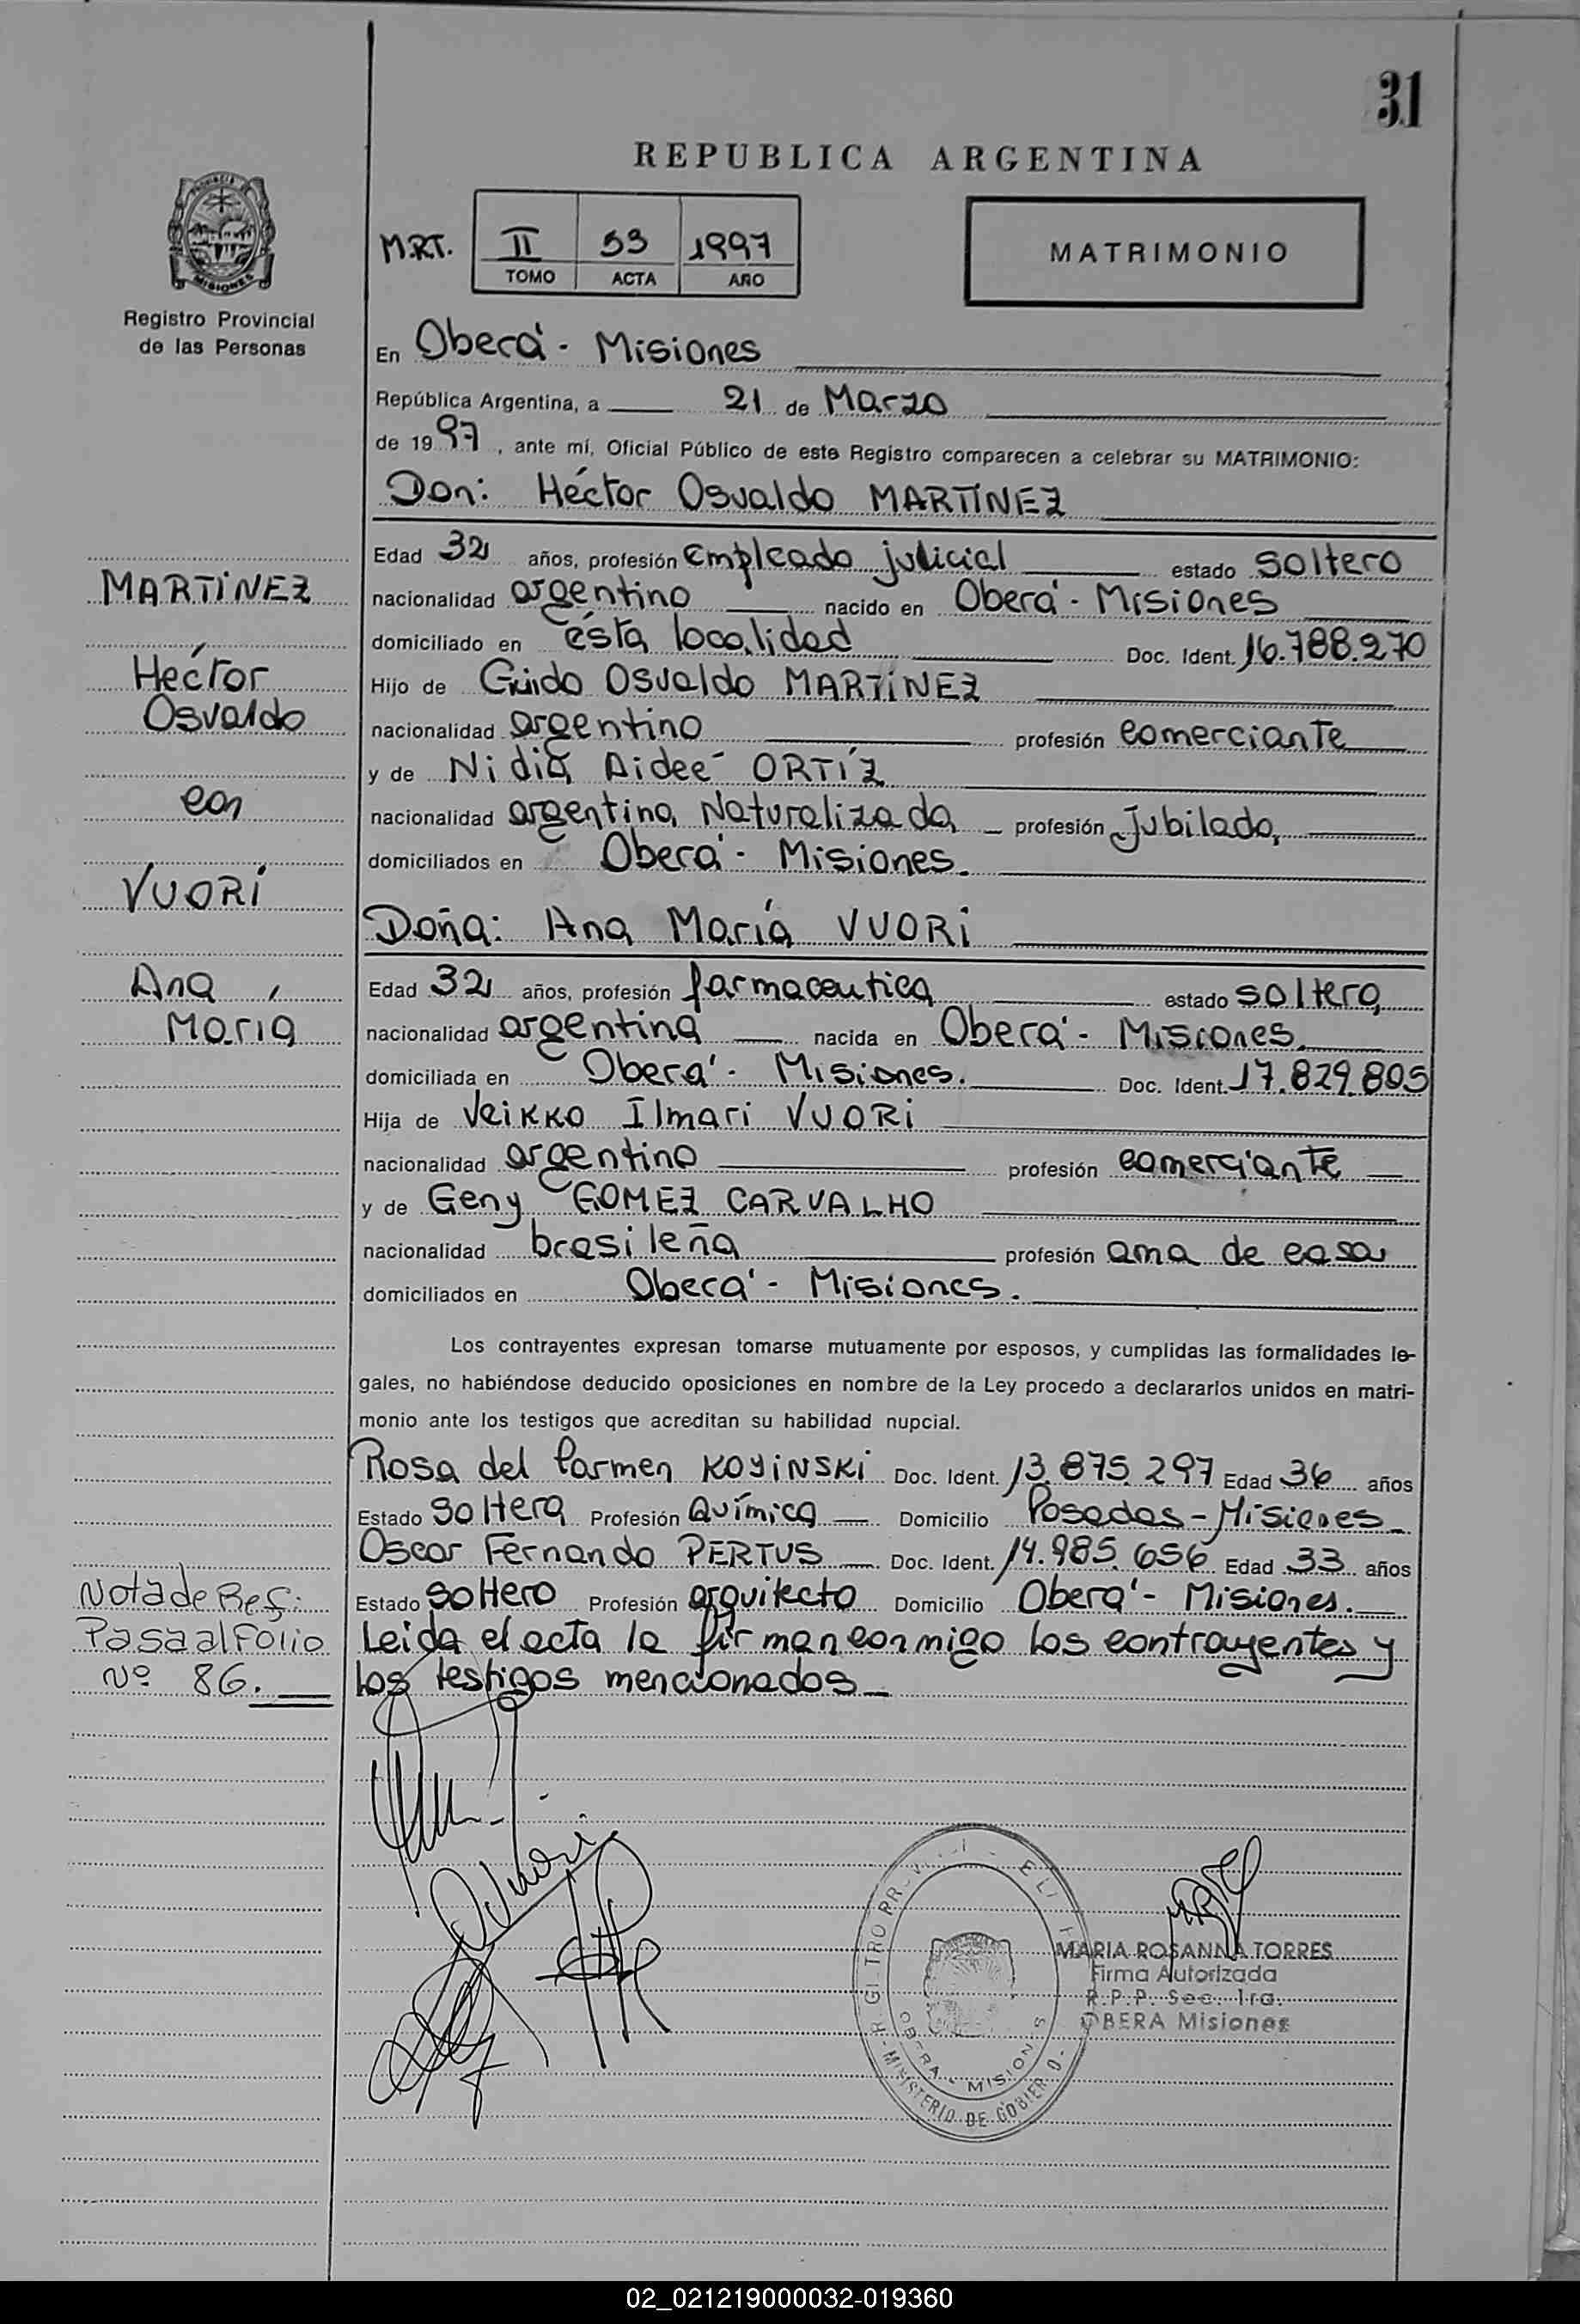 31
REPUBLICA ARGENTINA
PROVINCIA DE
MISIONES
Registro Provincial
de las Personas
M.R.T. II 53 1997
TOMO ACTA AÑO
MATRIMONIO
En Oberá - Misiones
República Argentina, a 21 de Marzo
de 1997, ante mí, Oficial Público de este Registro comparecen a celebrar su MATRIMONIO:
Don: Héctor Osvaldo MARTÍNEZ
Edad 32 años, profesión Empleado judicial estado soltero
nacionalidad argentino nacido en Oberá - Misiones
domiciliado en ésta localidad Doc. Ident. 16.788.270
Hijo de Guido Osvaldo MARTÍNEZ
nacionalidad argentino profesión comerciante
y de Nidia Aideé ORTÍZ
nacionalidad argentina Naturalizada profesión Jubilada,
domiciliados en Oberá - Misiones.
Doña: Ana María VUORI
Edad 32 años, profesión farmaceutica estado soltera
nacionalidad argentina nacida en Oberá - Misiones.
domiciliada en Oberá - Misiones. Doc. Ident. 17.829.805
Hija de Veikko Ilmari VUORI
nacionalidad argentino profesión comerciante
y de Geny GOMEZ CARVALHO
nacionalidad brasileña profesión ama de casa
domiciliados en Oberá - Misiones.
MARTÍNEZ
Héctor
Osvaldo
con
VUORI
Ana
María
Los contrayentes expresan tomarse mutuamente por esposos, y cumplidas las formalidades le-
gales, no habiéndose deducido oposiciones en nombre de la Ley procedo a declararlos unidos en matri-
monio ante los testigos que acreditan su habilidad nupcial.
Rosa del Carmen KOYINSKI Doc. Ident. 13.875.297 Edad 36 años
Estado soltera Profesión Química Domicilio Posadas - Misiones
Oscar Fernando PERTUS Doc. Ident. 14.985.656 Edad 33 años
Estado soltero Profesión arquitecto Domicilio Oberá - Misiones.
Leida el acta la firman conmigo los contrayentes y
los testigos mencionados
Nota de Ref:
Pasa al Folio
Nº 86.
MINISTERIO DE GOBIERNO
OBERA - MISIONES
MARIA ROSANNA TORRES
Firma Autorizada
R.P.P. Sec. 1ra.
OBERA Misiones
02_021219000032-019360